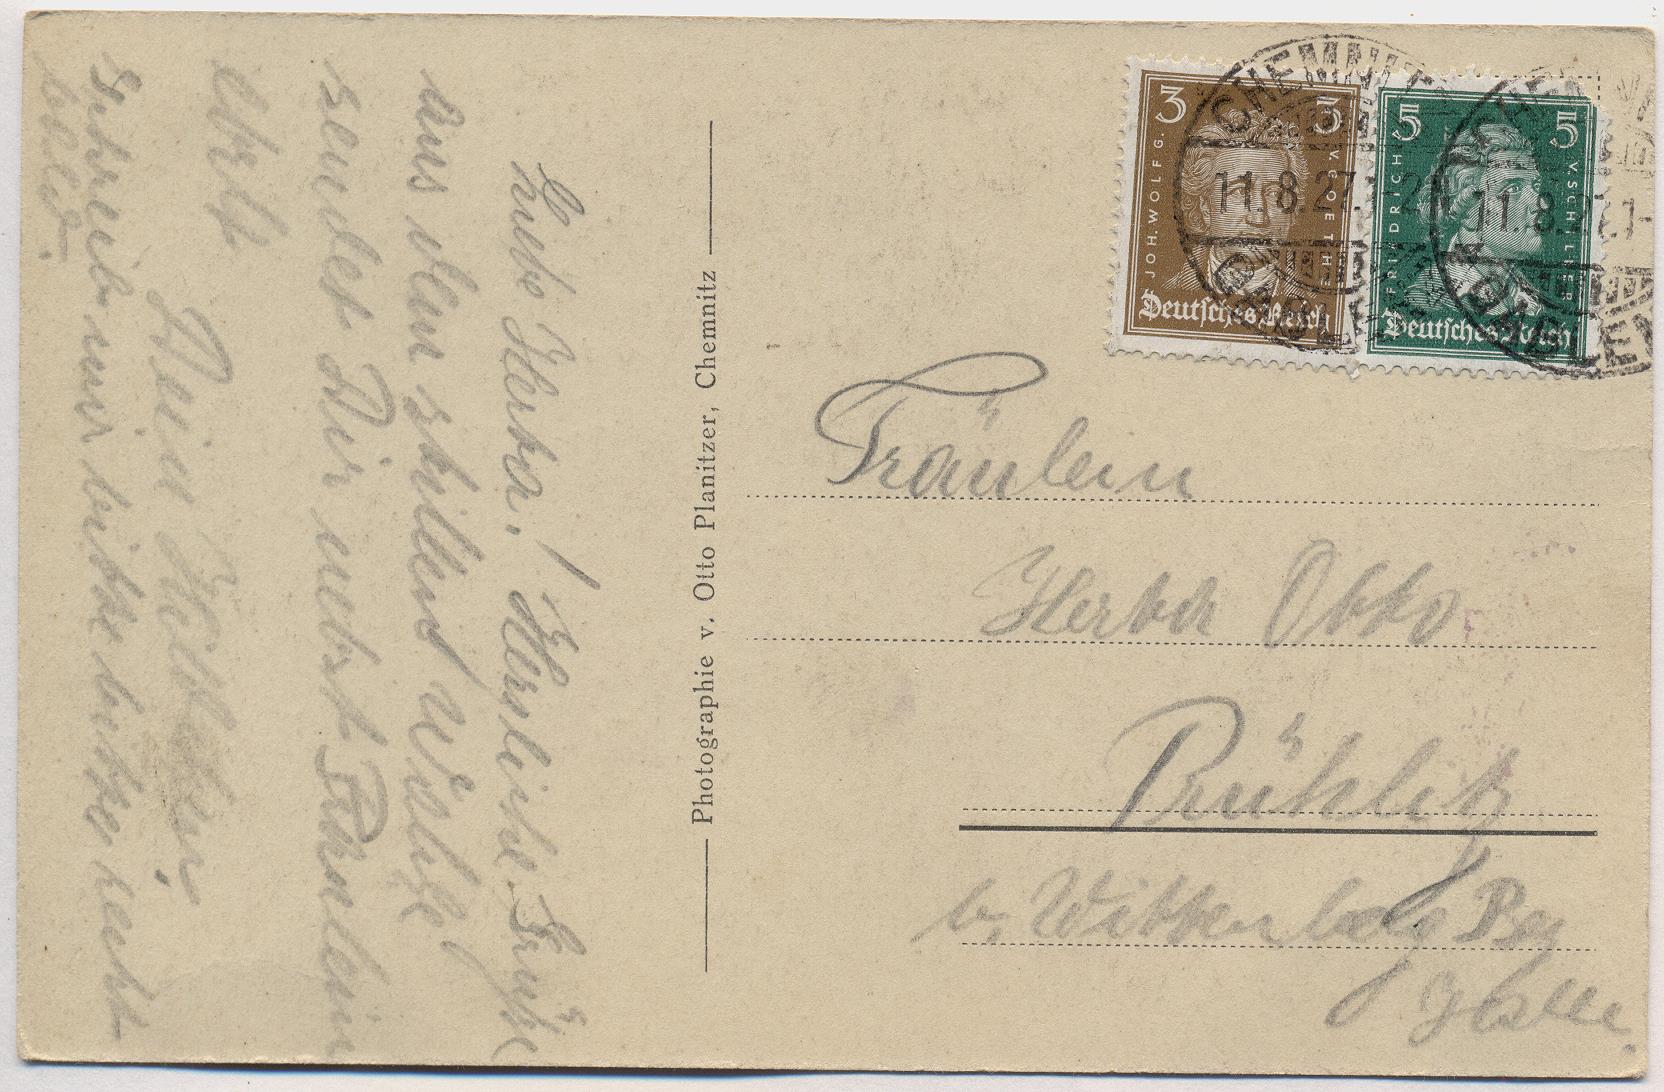 Liebe Herta! Herzliche Grüße
aus dem stillen Walde
sendet Dir nebst Fräulein
Deine
Schreib mir bitte bitte recht
bald.
Photographie v. Otto Planitzer, Chemnitz
3 3
JOH. WOLFG. V. GOETHE
Deutsches Reich
5 5
FRIEDRICH V. SCHILLER
Deutsches Reich
CHEMNITZ
11.8.27.
CHEMNITZ
11.8.27.
Fräulein
Herta Otto
b. Wittenberg Bez
Halle.